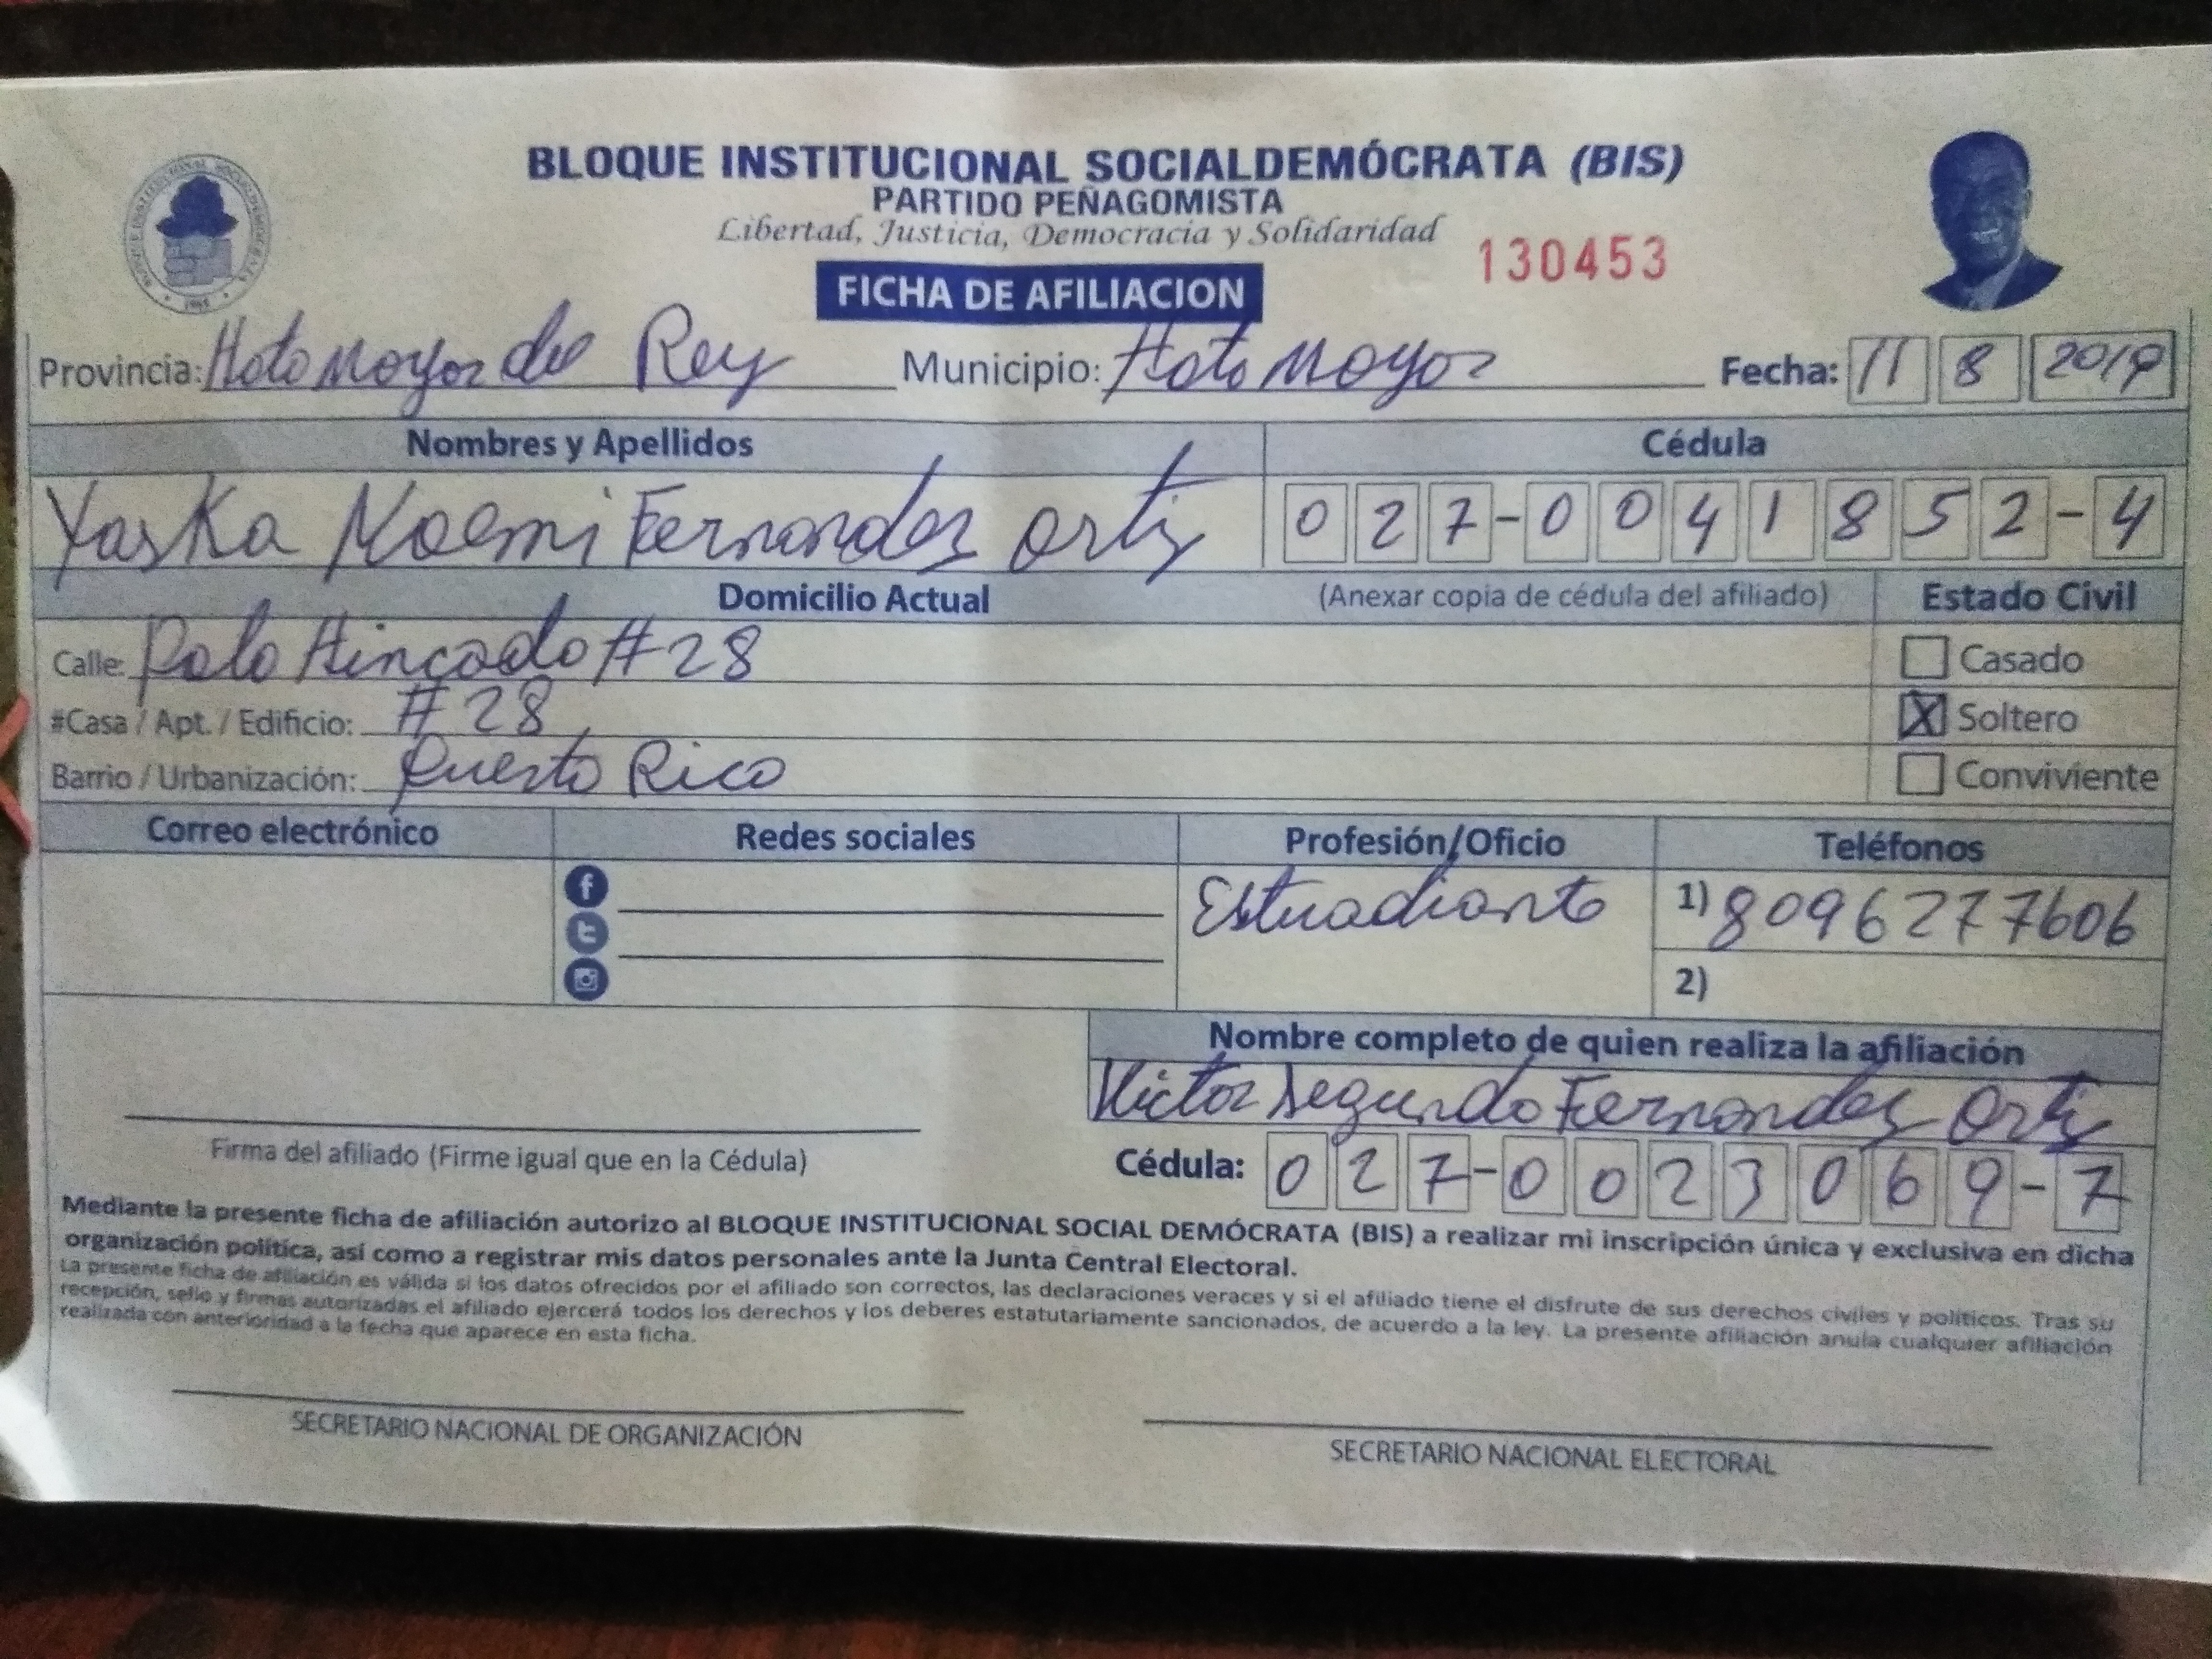 BLOQUE INSTITUCIONAL SOCIALDEMÓCRATA (BIS)
PARTIDO PEÑAGOMISTA
Libertad, Justicia, Democracia y Solidaridad
130453
FICHA DE AFILIACION
Provincia: Hato Mayor del Rey Municipio: Hato Mayor Fecha: 11 8 2019
Nombres y Apellidos Cédula
Yaska Noemi Fernandez Ortiz 027-0041852-4
Domicilio Actual (Anexar copia de cédula del afiliado) Estado Civil
Calle: Palo Hincado #28 Casado
#Casa / Apt. / Edificio: #28 X Soltero
Barrio / Urbanización: Puerto Rico Conviviente
Correo electrónico Redes sociales Profesión/Oficio Teléfonos
Estuadiante 1) 8096277606
2)
Nombre completo de quien realiza la afiliación
Victor Segundo Fernandez Ortiz
Firma del afiliado (Firme igual que en la Cédula) Cédula: 027-0023069-7
Mediante la presente ficha de afiliación autorizo al BLOQUE INSTITUCIONAL SOCIAL DEMÓCRATA (BIS) a realizar mi inscripción única y exclusiva en dicha
organización política, así como a registrar mis datos personales ante la Junta Central Electoral.
La presente ficha de afiliación es válida si los datos ofrecidos por el afiliado son correctos, las declaraciones veraces y si el afiliado tiene el disfrute de sus derechos civiles y políticos. Tras su
recepción, sello y firmas autorizadas el afiliado ejercerá todos los derechos y los deberes estatutariamente sancionados, de acuerdo a la ley. La presente afiliación anula cualquier afiliación
realizada con anterioridad a la fecha que aparece en esta ficha.
SECRETARIO NACIONAL DE ORGANIZACIÓN SECRETARIO NACIONAL ELECTORAL